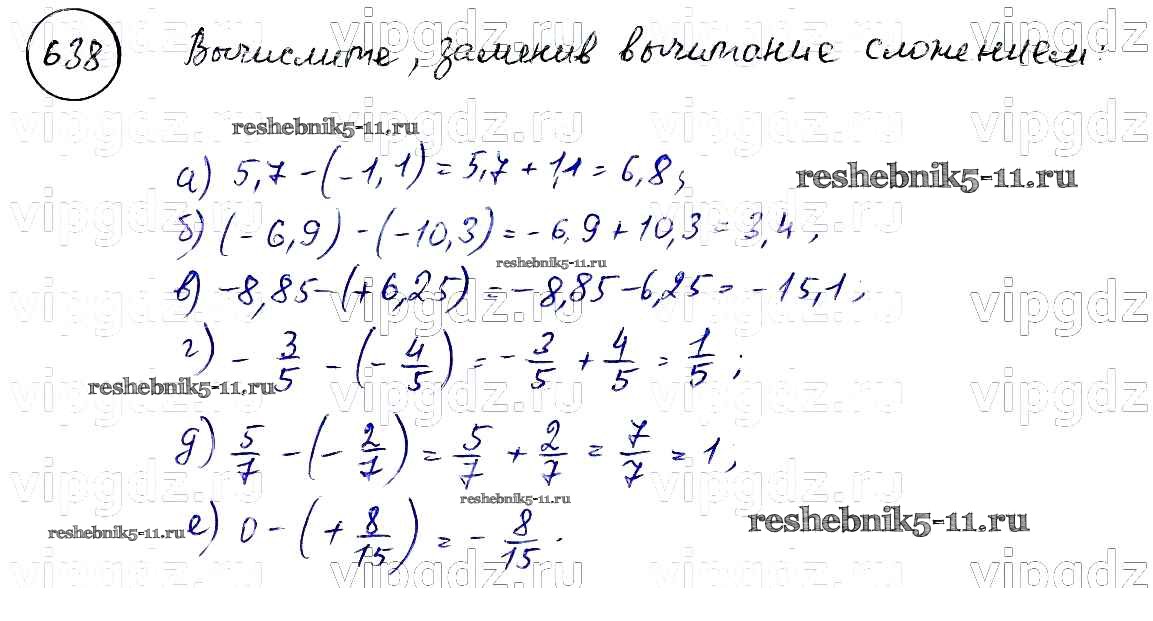 638 Вычислите, заменив вычитание сложением:
reshebnik5-11.ru
а) 5,7 - (-1,1) = 5,7 + 1,1 = 6,8;
reshebnik5-11.ru
б) (-6,9) - (-10,3) = -6,9 + 10,3 = 3,4;
reshebnik5-11.ru
в) -8,85 - (+6,25) = -8,85 - 6,25 = -15,1;
г) - 3/5 - (- 4/5) = - 3/5 + 4/5 = 1/5;
reshebnik5-11.ru
д) 5/7 - (- 2/7) = 5/7 + 2/7 = 7/7 = 1;
reshebnik5-11.ru
е) 0 - (+ 8/15) = - 8/15.
reshebnik5-11.ru
reshebnik5-11.ru
vipgdz.ru vipgdz.ru vipgdz
vipgdz.ru vipgdz.ru vipgdz
vipgdz.ru vipgdz.ru vipgdz
vipgdz.ru vipgdz.ru vipgdz
vipgdz.ru vipgdz.ru vipgdz
vipgdz.ru vipgdz.ru vipgdz
vipgdz.ru vipgdz